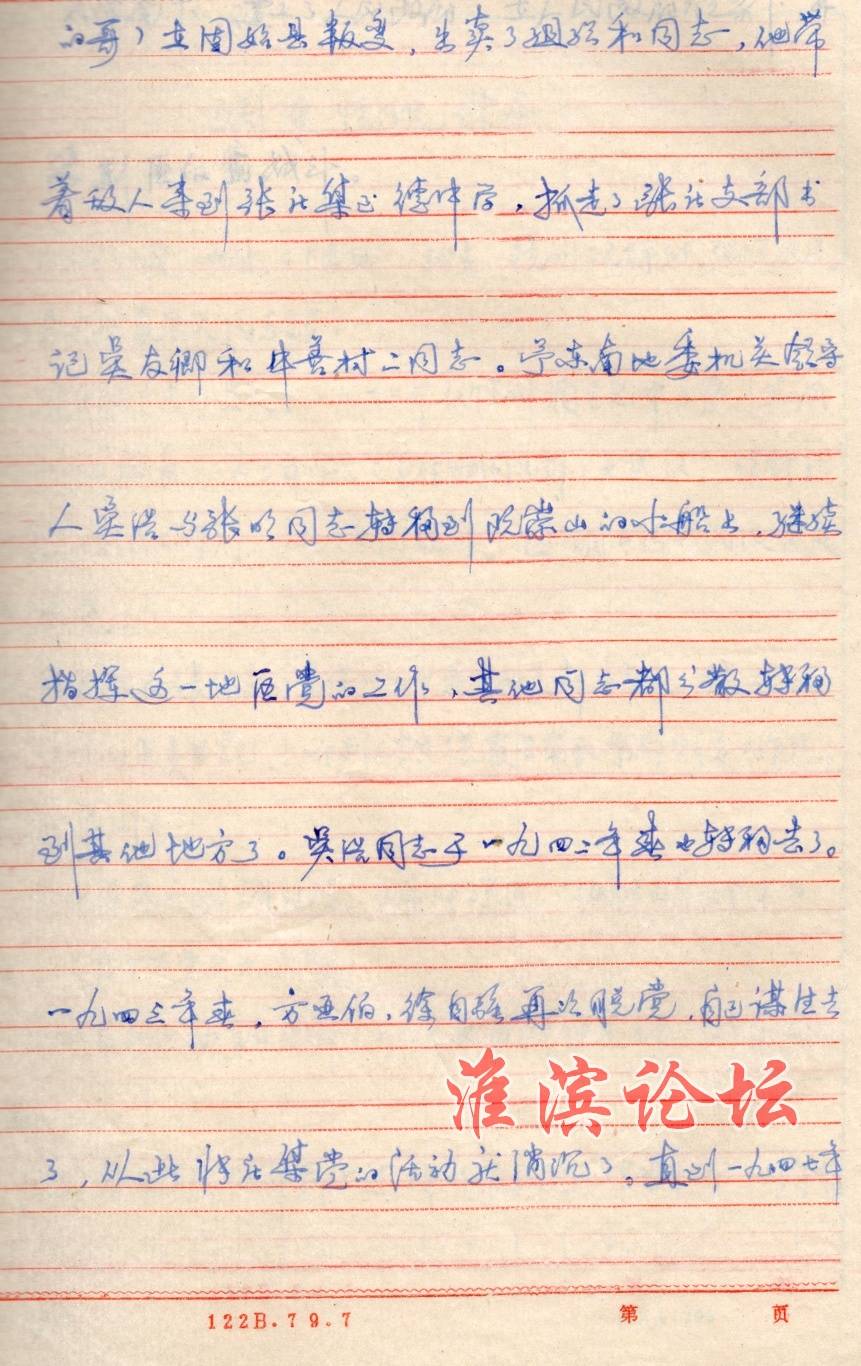 的哥）在固始县叛变，出卖了组织和同志，他带
着敌人来到张庄集正德中学，抓走了张庄支部书
记吴友卿和牛善村二同志。豫东南地委机关领导
人吴浩与张明同志转移到阮崇山的水船上，继续
指挥这一地区党的工作，其他同志都分散转移
到其他地方了。吴浩同志于一九四二年春也转移去了。
一九四三年春，方亚伯，徐自强再次脱党，自己谋生去
了，从此张庄集党的活动就消沉了。直到一九四七年
淮滨论坛
122B.79.7 第 页